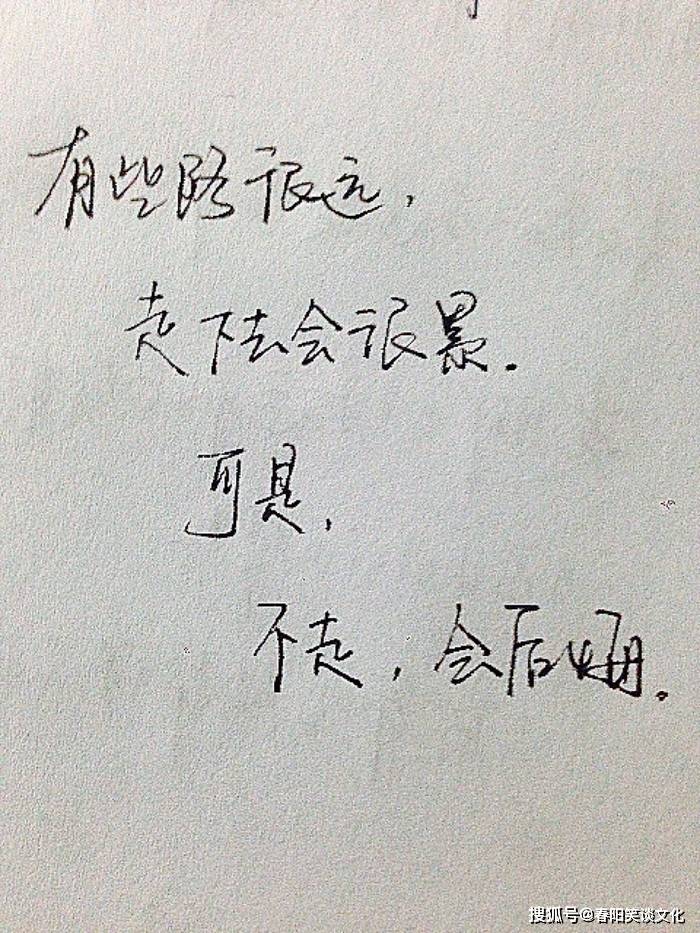 有些路很远，
走下去会很累．
可是，
不走，会后悔．
搜狐号@春阳笑谈文化